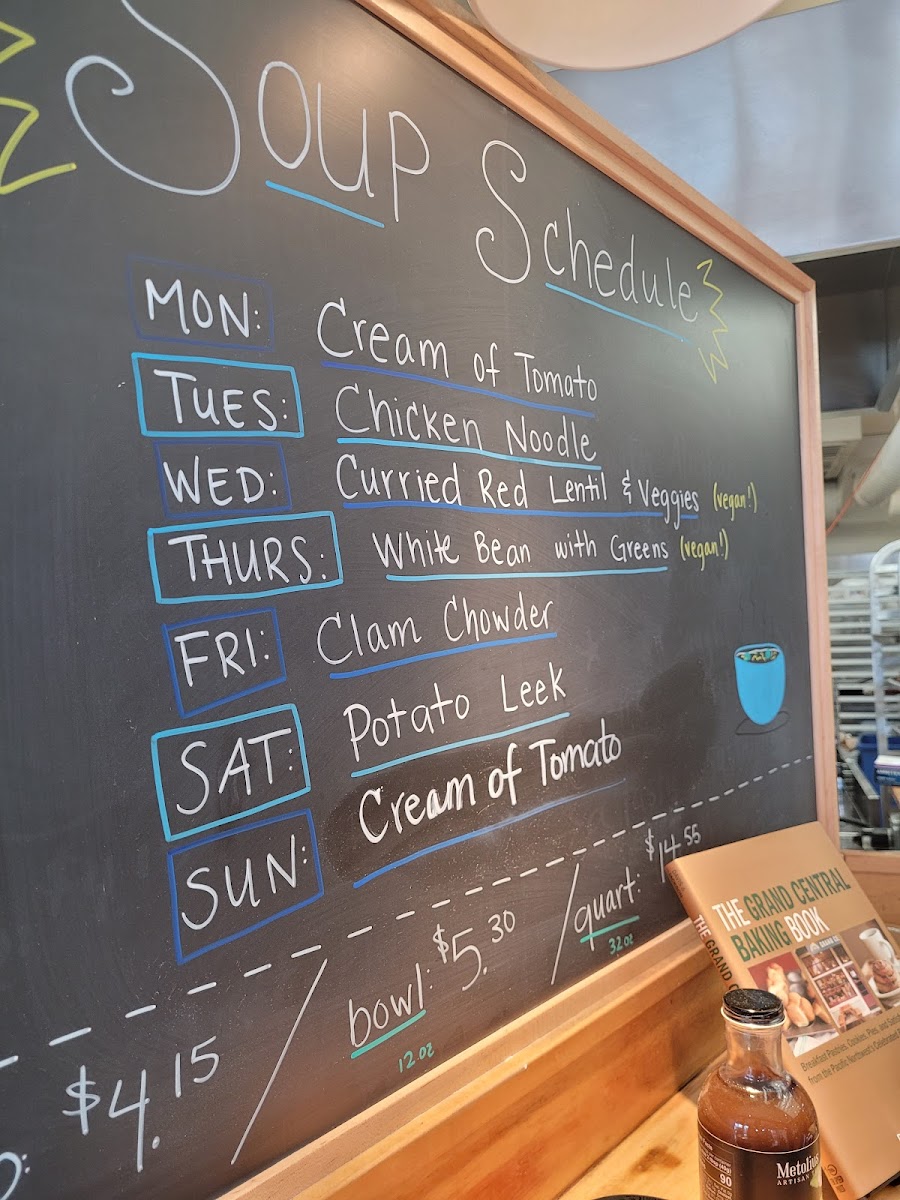 Soup Schedule
MON: Cream of Tomato
TUES: Chicken Noodle
WED: Curried Red Lentil & Veggies (vegan!)
THURS: White Bean with Greens (vegan!)
FRI: Clam Chowder
SAT: Potato Leek
SUN: Cream of Tomato
$4.15 / bowl: $5.30 / quart: $14.55
12oz 32oz
THE GRAND CENTRAL
BAKING BOOK
Breakfast Pastries, Cookies, Pies, and
from the Pacific Northwest's Celebrated
THE GRAND
90
Metolius
ARTISAN